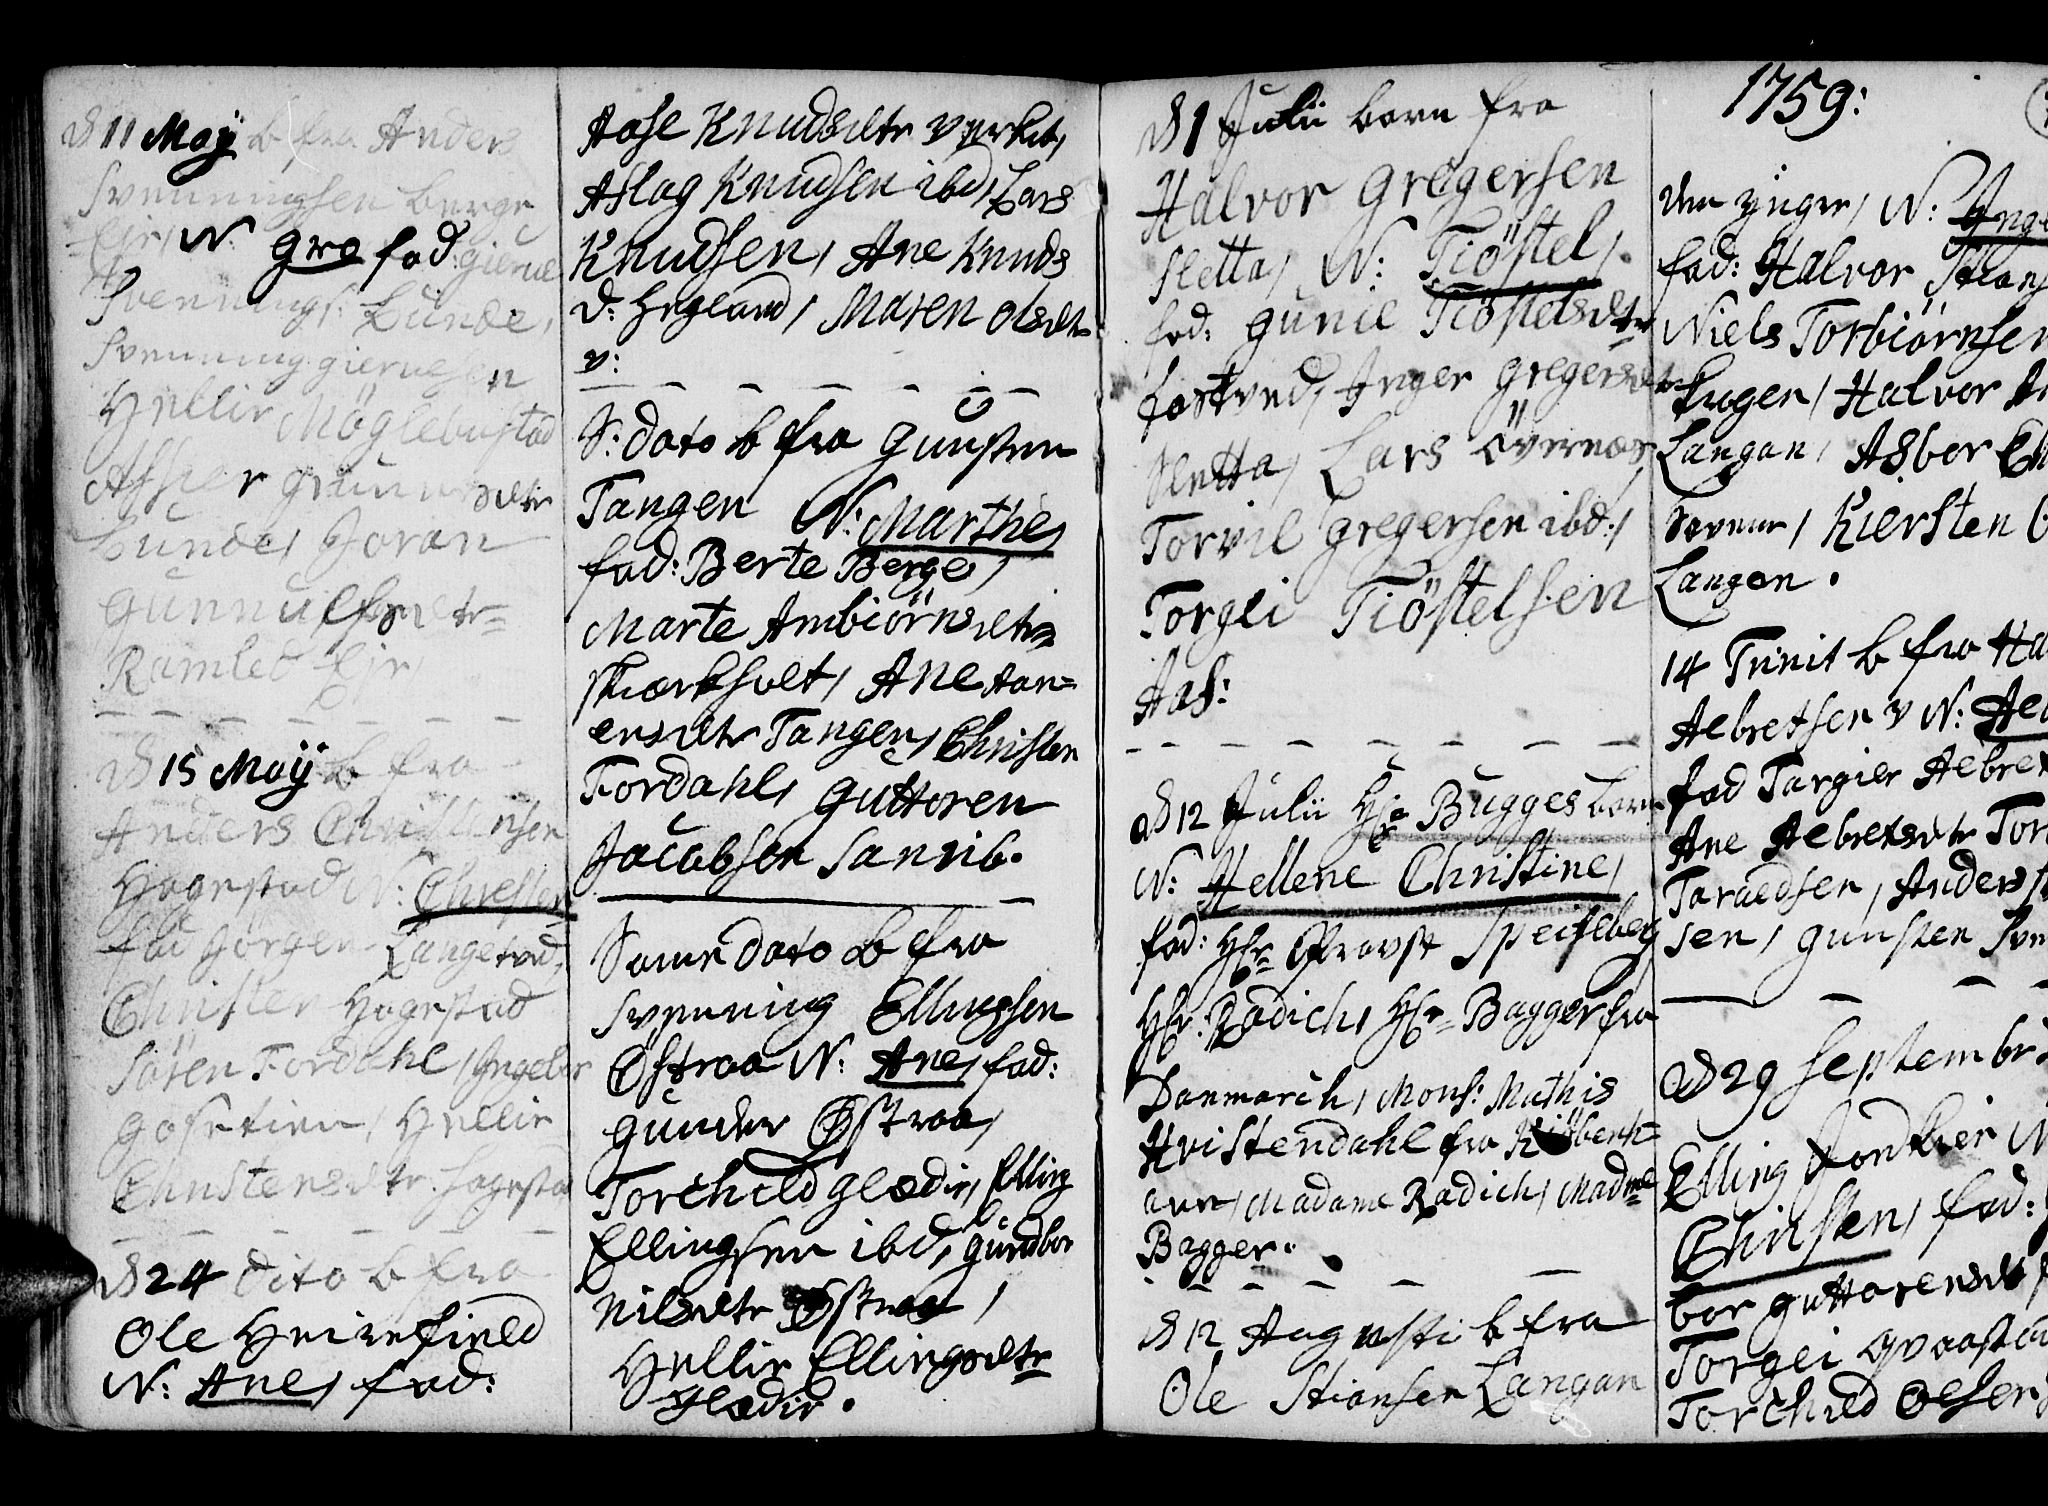 d 11 Maÿ b fra Anders
Svenningsen berge
Eie, N: Gro fad: gierue
Svennings: Lunde,
Svenning gieruesen
Hellie Möglebustad
Asher gunuersdtr
Lunde, Joran
Gunnulfsdtr
Ramlet Eie,
d 15 Maÿ b fra
Anders Christensen
Hogestad N: Christen
fad Jörgen Langetved,
Christen Hogestad
Sören Fordahl, Ingebor
gosetien, Hellie
Christensdtr. hogestad
d 24 dito b fra
Ole Heirefield
N: Ane, fad:
Aase Knudsdtr verket,
Aslag Knudsen ibd, Lars
Knudsen, Ane Knuds
d: Hegland, Maren Olsdtr
v:
S: dato b fra Gunsten
Tangen N: Marthe,
fad: Berte Berge,
Marte Ambiörnsdtr
skiærkholt, Ane Aan=
ensdtr Tangen, Christen
Fordahl, Guttoren
Jacobsen Sannib.
Same dato b fra
Svenning Ellingsen
Østraa N: Ane, fad:
Gunder Østraa,
Torchild Glædie, Elling
Ellingsen ibd, Gundbor
Nilsdtr Østraa,
Hellie Ellingsdtr
Glædie.
d 1 Julii barn fra
Halvor Gregersen
Sletta, N: Tiöstel,
fad: Gunil Tiöstelsdtr
fostved, Inger Gregersdtr
Sletta, Lars Övernæs,
Torvil Gregersen ibd:,
Torgei Tiöstelsen
Aas:
d 12 Julii Hr Bugges barn
N: Hellene Christine,
fad: Hr Provst Speilberg
Hr: Radich, Hr Bagger fra
Danmarch, Mons: Mathis
Hvistendahl fra Kiöbenh=
avn, Madame Radich, Madme
Bagger.
d 12 Augusti b fra
Ole Stiansen Langan
1759:
den yngre, N: Inge
fad: Halvor Stians
Niels Torbiörnsen
Hugen, Halvor
Langan, Asbor
Kiersten
Langan.
14 Trinit b fra Ha
Aebretsen v N: Ae
fad Targier Aebret
Ane Aebretsdtr Tor
Taraldsen, Anders
sen, Gunsten Sve
d 29 Septembr
Elling Jordkier N
Christen, fad:
bor Guttorensdt
Torgei Qvaasta
Torchild Olsen